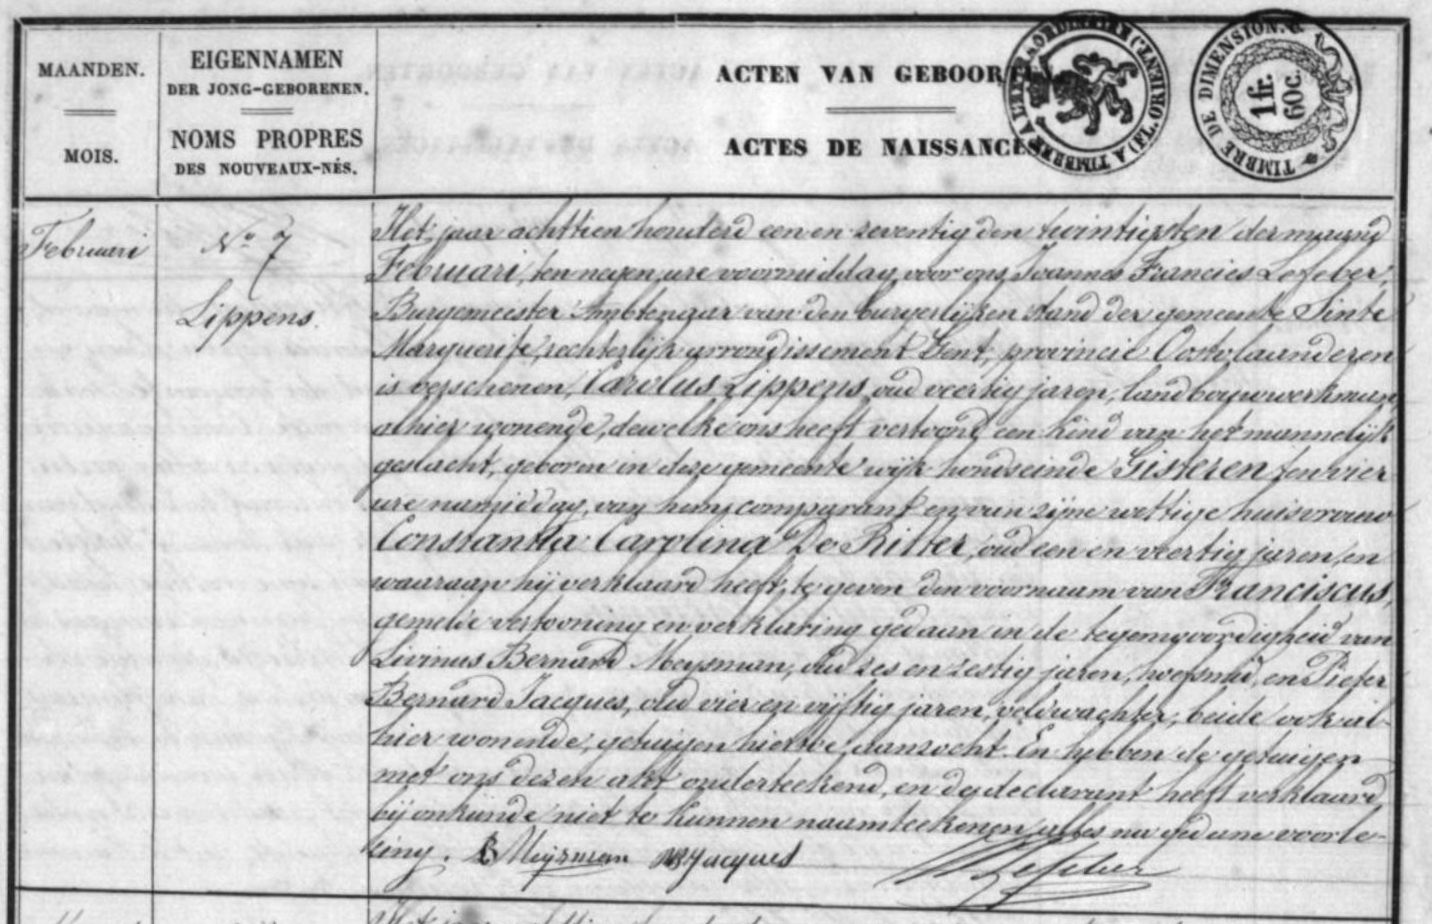 MAANDEN.
MOIS.
EIGENNAMEN
DER JONG-GEBORENEN.
NOMS PROPRES
DES NOUVEAUX-NÉS.
ACTEN VAN GEBOORTEN
ACTES DE NAISSANCES
TIMBRE DE DIMENSION.
1 fr.
60 c.
Februari
No 7
Lippens.
Het jaar achttien honderd een en zeventig den twintigsten der maand
Februari, ten negen ure voormiddag, voor ons Joannes Francies Lefeber,
Burgemeester Ambtenaar van den burgerlijken stand der gemeente Sinte
Marguerite, rechterlijk arrondissement Gent, provincie Oostvlaanderen
is verschenen, Carolus Lippens, oud veertig jaren, landbouwwerkman
alhier wonende, dewelke ons heeft vertoond een kind van het mannelijk
geslacht, geboren in deze gemeente wijk hondseinde Gisteren ten vier
ure namiddag, van hem comparant en van zijne wettige huisvrouw
Constantia Carolina De Ritter, oud een en veertig jaren, en
waaraan hij verklaard heeft, te geven den voornaam van Franciscus,
gemelde vertooning en verklaring gedaan in de tegenwoordigheid van
Livinus Bernard Meysman, oud zes en zestig jaren, hoefsmid, en Pieter
Bernard Jacques, oud vier en vijftig jaren, veldwachter, beide ook al-
hier wonende, getuigen hiertoe aanzocht. En hebben de getuigen
met ons dezen akt onderteekend, en de declarant heeft verklaard,
bij onkunde niet te kunnen naamteekenen, alles na gedane voorle-
zing. B Meysman Jacques Lefeber